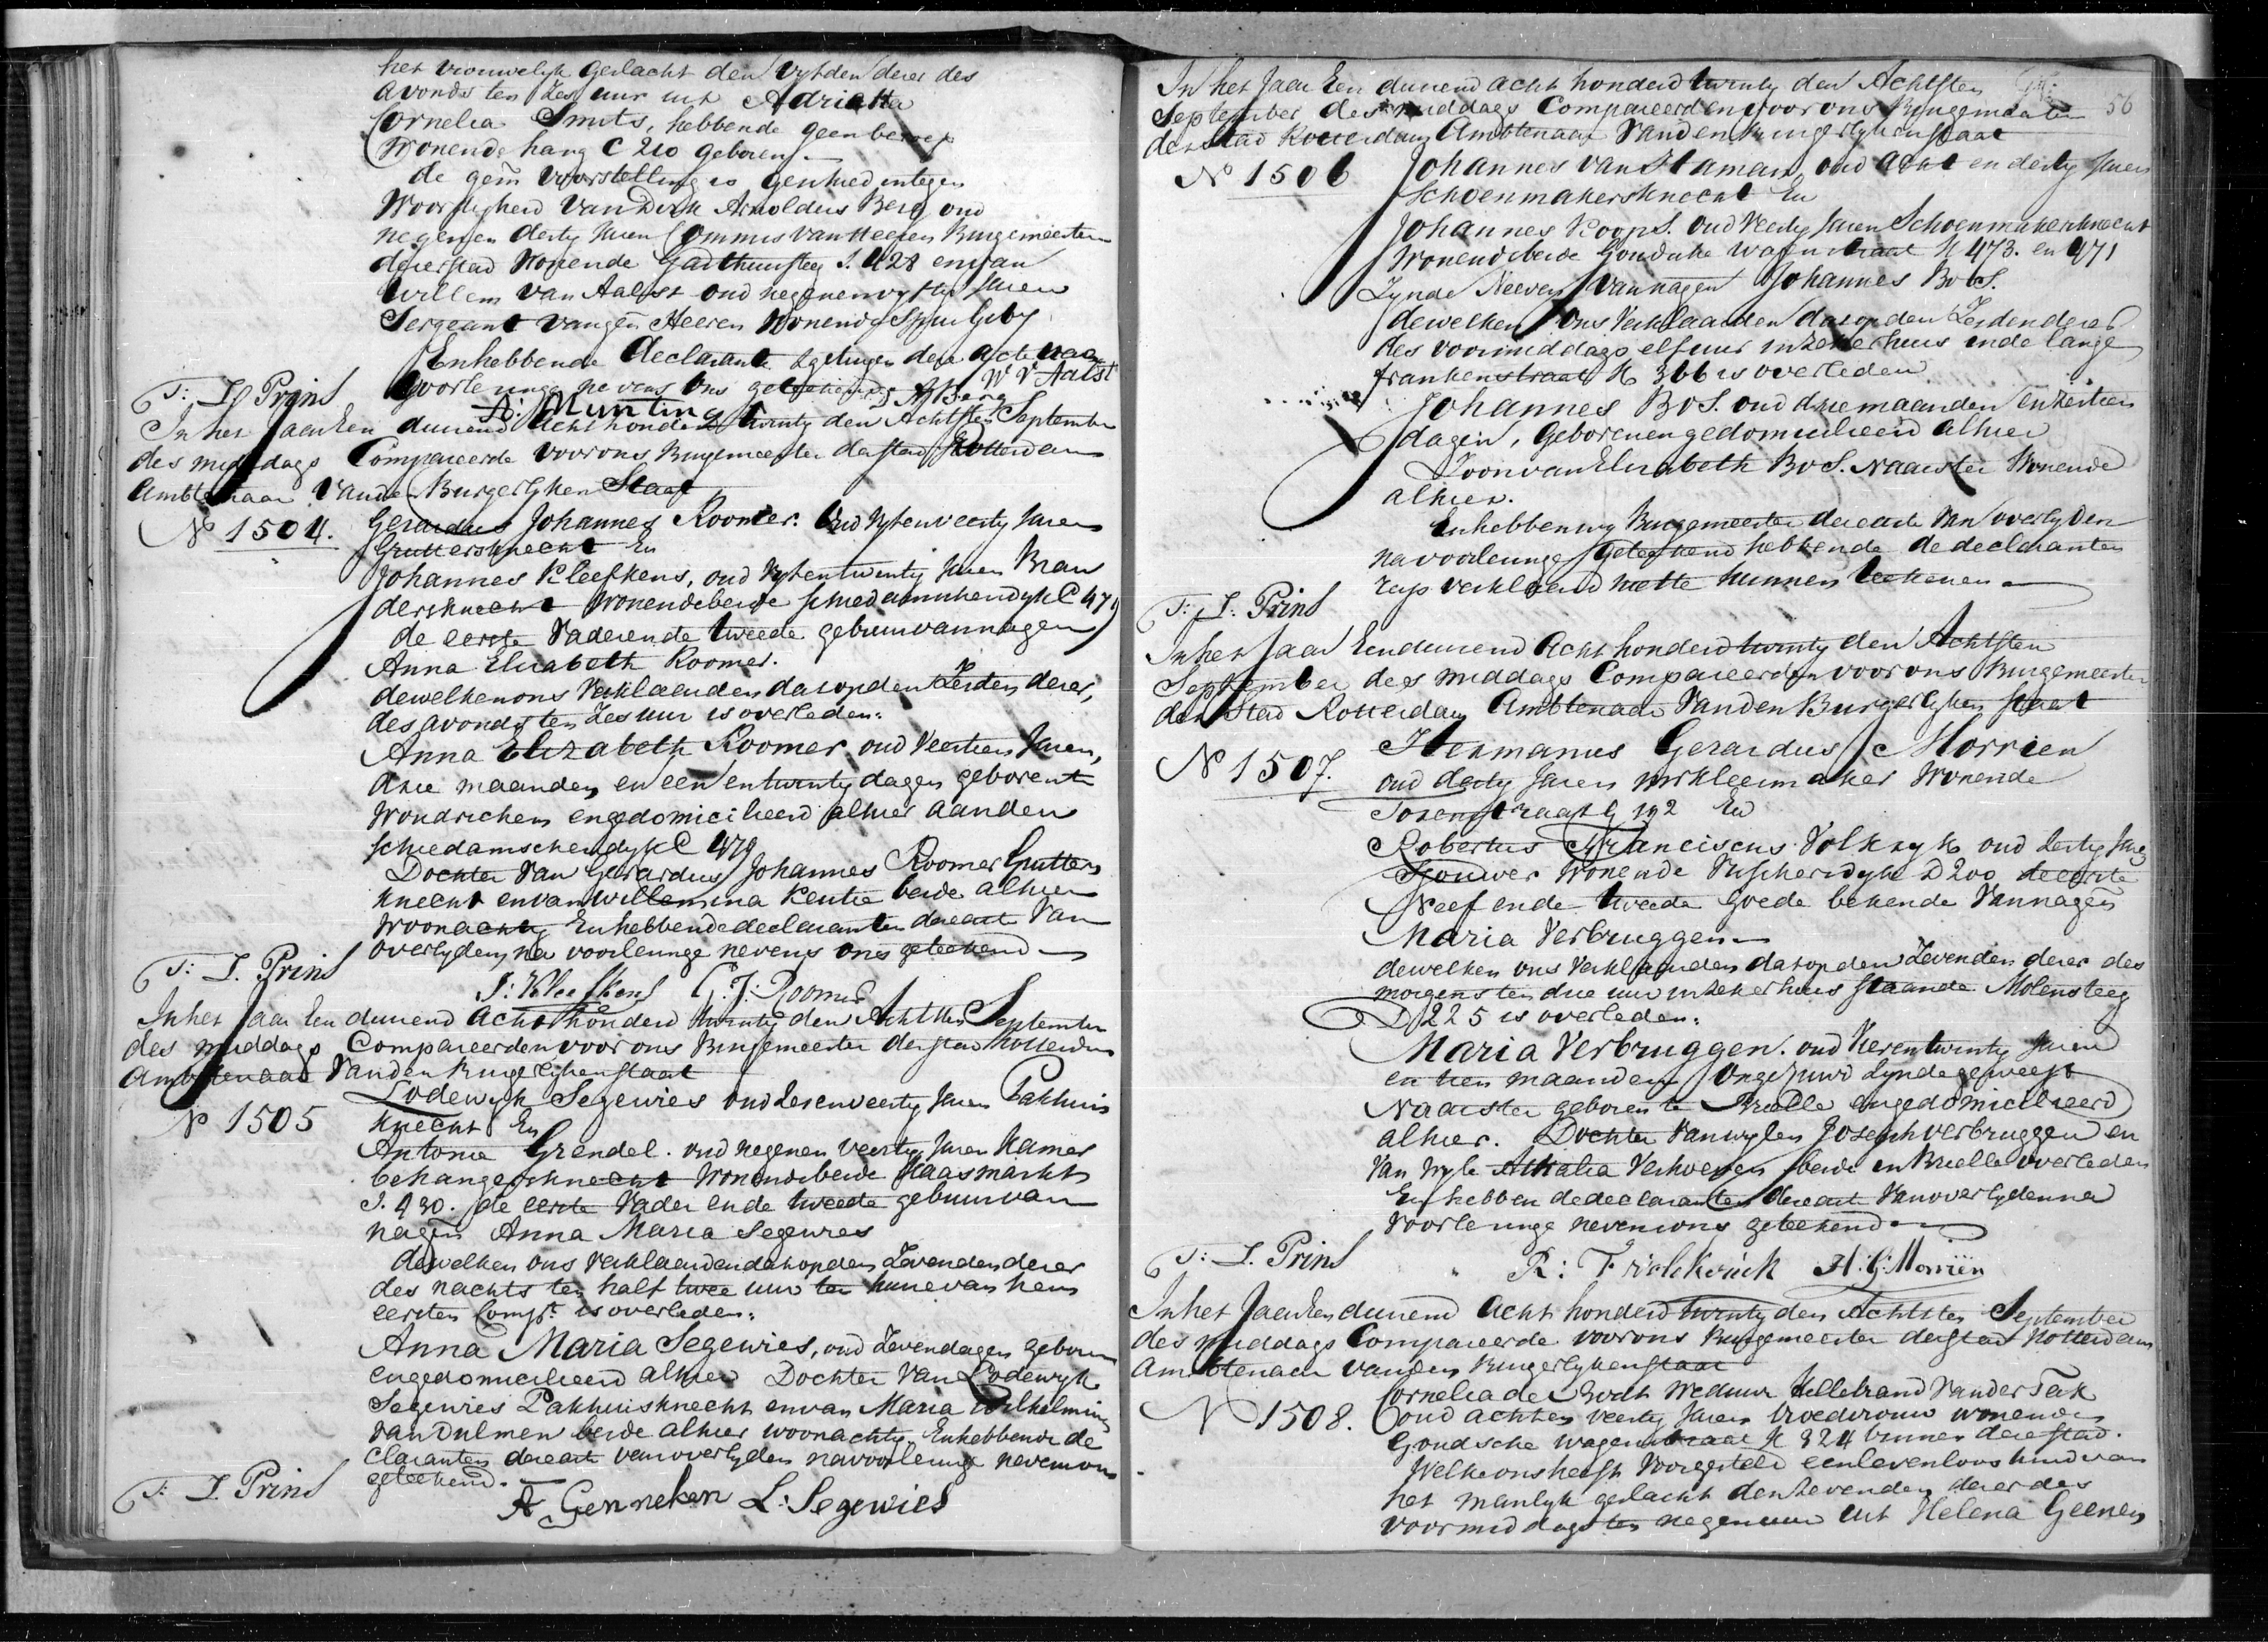 het vrouwelyk geslacht den vyfden dezer des
avonds ten zes uur uit Adriana
Cornelia Smits, hebbende geen beroep
Wonende hang C 210 geboren
de gem voorstelling is geschied in tegen
Woordigheid van Dirk Arnoldus Berg oud
negen en dertig Jaren Commies van Heeren Burgemeesteren
dezer stad Wonende S. 428 en van
Willem van Aalst oud negenenvyftig Jaren
Sergeant van gen Heeren Wonende
En hebbende Declarante & getuigen deze acte na
voorlezinge nevens ons geteekend W V Aalst
T: I. Prins A: Munting D A Berg
In het Jaar Een duizend Acht honderd twintig den Achtsten September
des middags Compareerde voor ons Burgemeester der stad Rotterdam
Ambtenaar Van den Burgerlyken Staat
No 1504. Gerardus Johannes Roomer. Oud vyfenveertig Jaren
Gruttersknecht En
Johannes Kleefkens, oud vyfentwintig Jaren Bran
dersknecht Wonende beide schiedamschendyk C 479
de eerste Vader en de tweede gebuur van nagen
Anna Elisabeth Roomer.
dewelken ons Verklaarden dat op den Zesden dezer,
des avonds ten Zes uur is overleden:
Anna Elizabeth Roomer, oud Veertien Jaren,
drie maanden en een en twintig dagen geboren te
Woudrichem en gedomicilieerd alhier aan den
schiedamschendyk C 479
Dochter Van Gerardus Johannes Roomer Grutters
knecht en van Willemina Keutie beide alhier
Woonachtig En hebbende declaranten deze act Van
overlyden, na voorlezinge nevens ons geteekend
T: I. Prins
J: Kleefkens G. J: Roomer
In het Jaar Een duizend Acht honderd twintig den Achtsten September
des middags Compareerden voor ons Burgemeester der stad Rotterdam
Ambtenaar Van den Burgerlyken staat
No 1505 Lodewyk Segewies oud Zevenveertig Jaren Pakhuis
knecht En
Antonie Grendel. oud negen en veertig Jaren Kamer
behangersknecht Wonende beide Kaasmarkt
I. 430. de eerste Vader en de tweede gebuur van
nagen Anna Maria Segewies
dewelken ons Verklaarden dat op den Zevenden dezer
des nachts ten half twee uur ten huize van hem
eersten Compt. is overleden:
Anna Maria Segewies, oud Zeven dagen geboren
en gedomicilieerd alhier Dochter Van Lodewyk
Segewies Pakhuisknecht en van Maria Wilhelmina
Van Dulmen beide alhier woonachtig. En hebben de de
claranten deze act van overlyden na voorlezinge nevens ons
geteekend.
T: I. Prins
A Genneken L: Segewies
56
In het Jaar Een duizend acht honderd twintig den Achtsten
September des middags Compareerden voor ons Burgemeester
der stad Rotterdam Ambtenaar Van den burgerlyken staat
No 1506 Johannes van Staman, oud acht en dertig Jaren
Schoenmakersknecht En
Johannes Koops. oud Veertig Jaren Schoenmakersknecht
Wonende beide Goudsche Wagenstraat K 473. en 471
Zynde Neeven van nagen Johannes Bos.
dewelken ons Verklaarden dat op den Zesden dezer
des voormiddags elf uur in zeker huis in de lange
frankenstraat K 366 is overleden
Johannes Bos. oud drie maanden en zestien
dagen, Geboren en gedomicilieerd alhier
Zoon van Elizabeth Bos. Naaister Wonende
alhier.
En hebben wy Burgemeester deze acte Van overlyden
na voorlezinge geteekend hebbende de declaranten
ons verklaard niet te kunnen teekenen
T: I: Prins
In het Jaar Een duizend Acht honderd twintig den Achtsten
September des middags Compareerden voor ons Burgemeester
der Stad Rotterdam Ambtenaar Van den Burgerlyken staat
No 1507. Hermanus Gerardus Morrien
oud dertig Jaren Wonende
Torenstraat G 192 En
Robertus Franciscus oud dertig Jaren
Sjouwer Wonende Visscherdyk D 200 de eerste
Neef en de tweede goede bekende Van nagen
Maria Verbruggen
dewelken ons Verklaarden dat op den Zevenden dezer des
morgens ten drie uur in zeker huis staande Molensteeg
D 225 is overleden:
Maria Verbruggen. oud Vierentwintig Jaren
en tien maanden ongehuwd Zynde geweest
Naaister geboren te Brielle en gedomicilieerd
alhier. Dochter van wylen Joseph verbruggen en
Van Wyle Athalia Verhoeven beide in Brielle overleden
En hebben de declaranten deze act Van overlyden na
Voorlezinge nevens ons geteekend
T: I. Prins
R: Frielckrick H: G: Morriën
In het Jaar Een duizend Acht honderd twintig den Achtsten September
des middags Compareerde voor ons Burgemeester der stad Rotterdam
Ambtenaar van den Burgerlyken staat
No 1508. Cornelia de Weduwe Hillebrand Van der Tak
oud acht en veertig Jaren Vroedvrouw wonende
Goudsche wagenstraat K 324 binnen deze stad.
Welke ons heeft Voorgesteld een levenloos kind van
het manlyk geslacht den Zevenden dezer des
voormiddags ten negen uur uit Helena Geenen